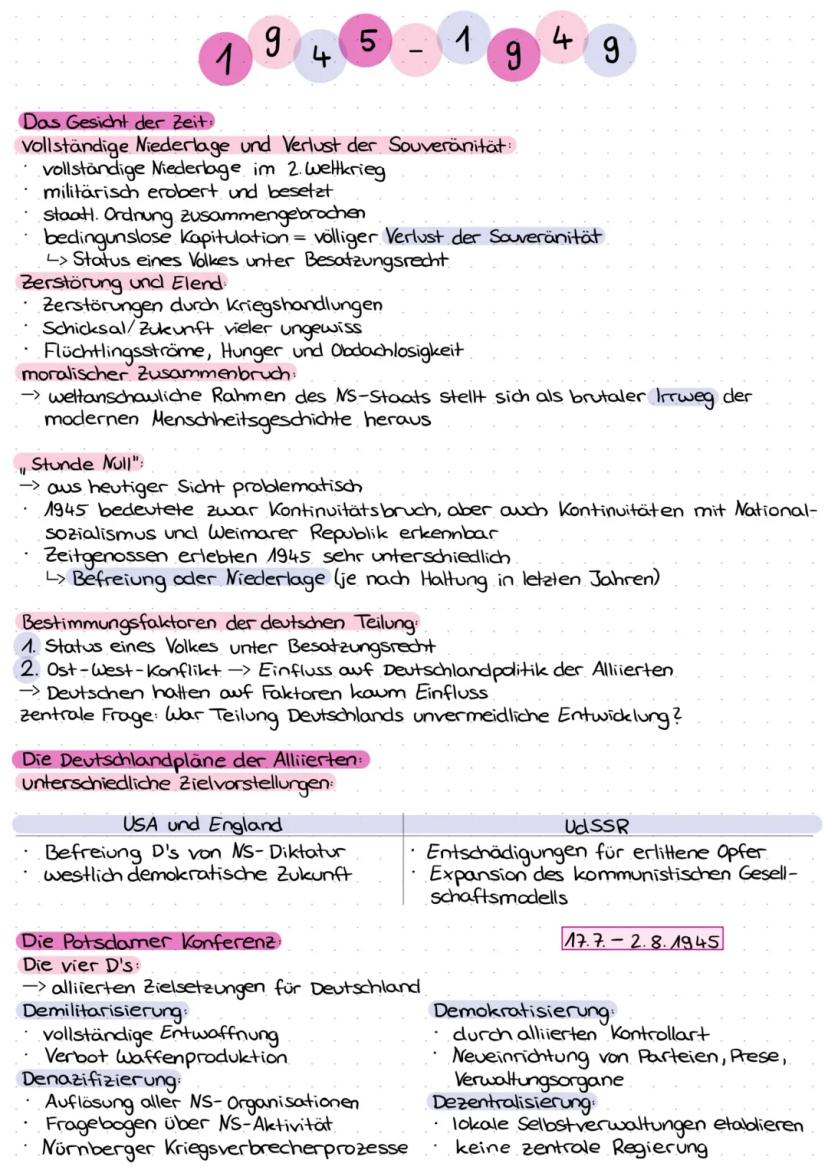 1945-1949
Das Gesicht der Zeit:
vollständige Niederlage und Verlust der Souveränität:
· vollständige Niederlage im 2. Weltkrieg
· militärisch erobert und besetzt
· staatl. Ordnung zusammengebrochen
· bedingunslose Kapitulation = völliger Verlust der Souveränität
↳ Status eines Volkes unter Besatzungsrecht
Zerstörung und Elend:
· Zerstörungen durch Kriegshandlungen
· Schicksal/Zukunft vieler ungewiss
· Flüchtlingsströme, Hunger und Obdachlosigkeit
moralischer Zusammenbruch:
→ weltanschauliche Rahmen des NS-Staats stellt sich als brutaler Irrweg der
modernen Menschheitsgeschichte heraus
„Stunde Null":
→ aus heutiger Sicht problematisch
· 1945 bedeutete zwar Kontinuitätsbruch, aber auch Kontinuitäten mit National-
sozialismus und Weimarer Republik erkennbar
· Zeitgenossen erlebten 1945 sehr unterschiedlich
↳ Befreiung oder Niederlage (je nach Haltung in letzten Jahren)
Bestimmungsfaktoren der deutschen Teilung:
1. Status eines Volkes unter Besatzungsrecht
2. Ost-West-Konflikt → Einfluss auf Deutschlandpolitik der Alliierten
→ Deutschen hatten auf Faktoren kaum Einfluss
zentrale Frage: War Teilung Deutschlands unvermeidliche Entwicklung?
Die Deutschlandpläne der Alliierten:
unterschiedliche Zielvorstellungen:
USA und England
· Befreiung D's von NS-Diktatur
· westlich demokratische Zukunft
UdSSR
· Entschädigungen für erlittene Opfer
· Expansion des kommunistischen Gesell-
schaftsmodells
Die Potsdamer Konferenz:
17.7. - 2.8.1945
Die vier D's:
→ alliierten Zielsetzungen für Deutschland
Demilitarisierung:
· vollständige Entwaffnung
· Verbot Waffenproduktion
Denazifizierung:
· Auflösung aller NS-Organisationen
· Fragebogen über NS-Aktivität
· Nürnberger Kriegsverbrecherprozesse
Demokratisierung:
· durch alliierten Kontrollart
· Neueinrichtung von Parteien, Prese,
Verwaltungsorgane
Dezentralisierung:
· lokale Selbstverwaltungen etablieren
· keine zentrale Regierung